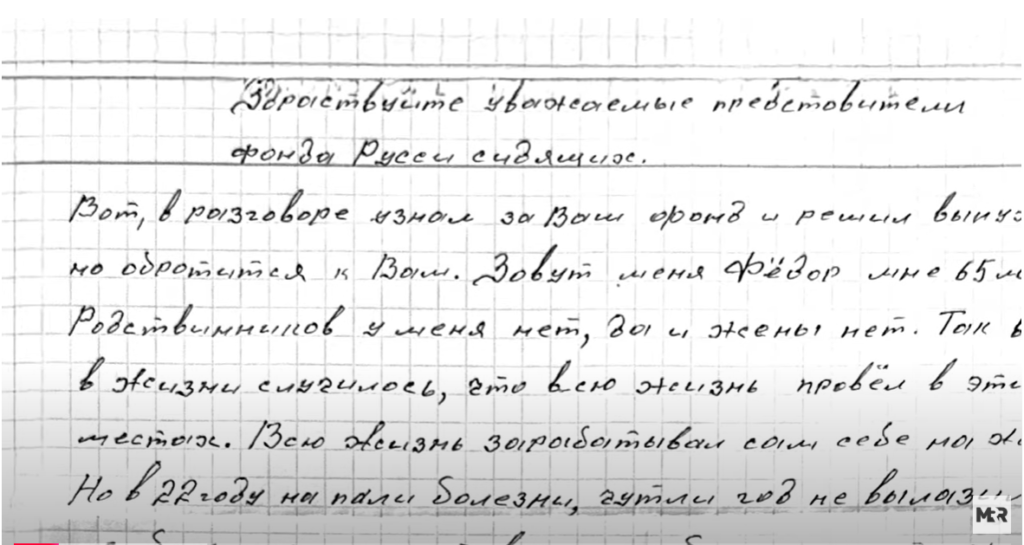 Здраствуйте уважаемые предстовители
фонда Русси сидящих.
Вот, в разговоре узнал за Ваш фонд и решил выну
но обротится к Вам. Зовут меня Фёдор мне 65
Родствинников у меня нет, да и жены нет. Так в
в жизни случилось, что всю жизнь провёл в эти
местах. Всю жизнь зарабатывал сам себе на
Но в 22 году на пали болезни, чутли год не вылази
MR